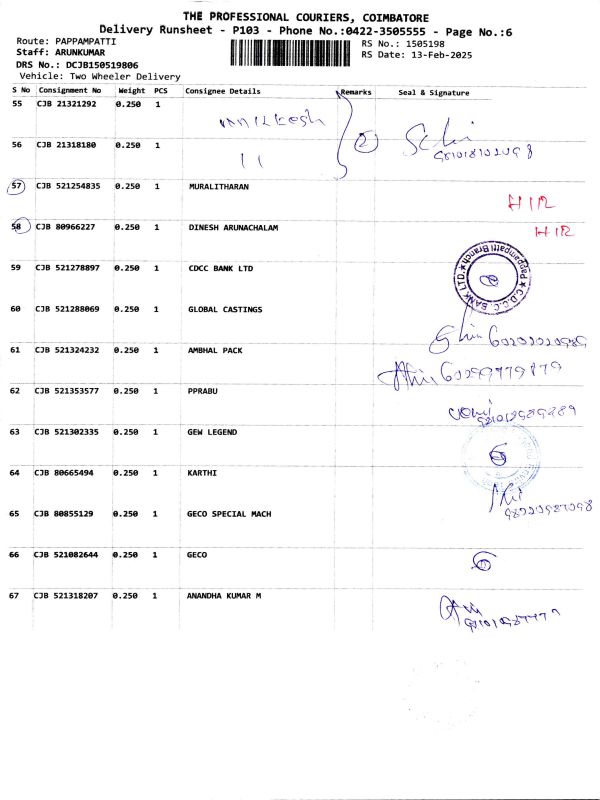 THE PROFESSIONAL COURIERS, COIMBATORE
Delivery Runsheet - P103 - Phone No.:0422-3505555 - Page No.:6
Route: PAPPAMPATTI
RS No.: 1505198
Staff: ARUNKUMAR
RS Date: 13-Feb-2025
DRS No.: DCJB150519806
Vehicle: Two Wheeler Delivery
S No Consignment No Weight PCS Consignee Details Remarks Seal & Signature
55 CJB 21321292 0.250 1
56 CJB 21318180 0.250 1
11
2
57 CJB 521254835 0.250 1 MURALITHARAN
58 CJB 80966227 0.250 1 DINESH ARUNACHALAM
59 CJB 521278897 0.250 1 CDCC BANK LTD
C.D.C.C. BANK LTD. ★ Pappampatti Branch ★
60 CJB 521288069 0.250 1 GLOBAL CASTINGS
61 CJB 521324232 0.250 1 AMBHAL PACK
62 CJB 521353577 0.250 1 PPRABU
63 CJB 521302335 0.250 1 GEW LEGEND
64 CJB 80665494 0.250 1 KARTHI
65 CJB 80855129 0.250 1 GECO SPECIAL MACH
66 CJB 521082644 0.250 1 GECO
67 CJB 521318207 0.250 1 ANANDHA KUMAR M